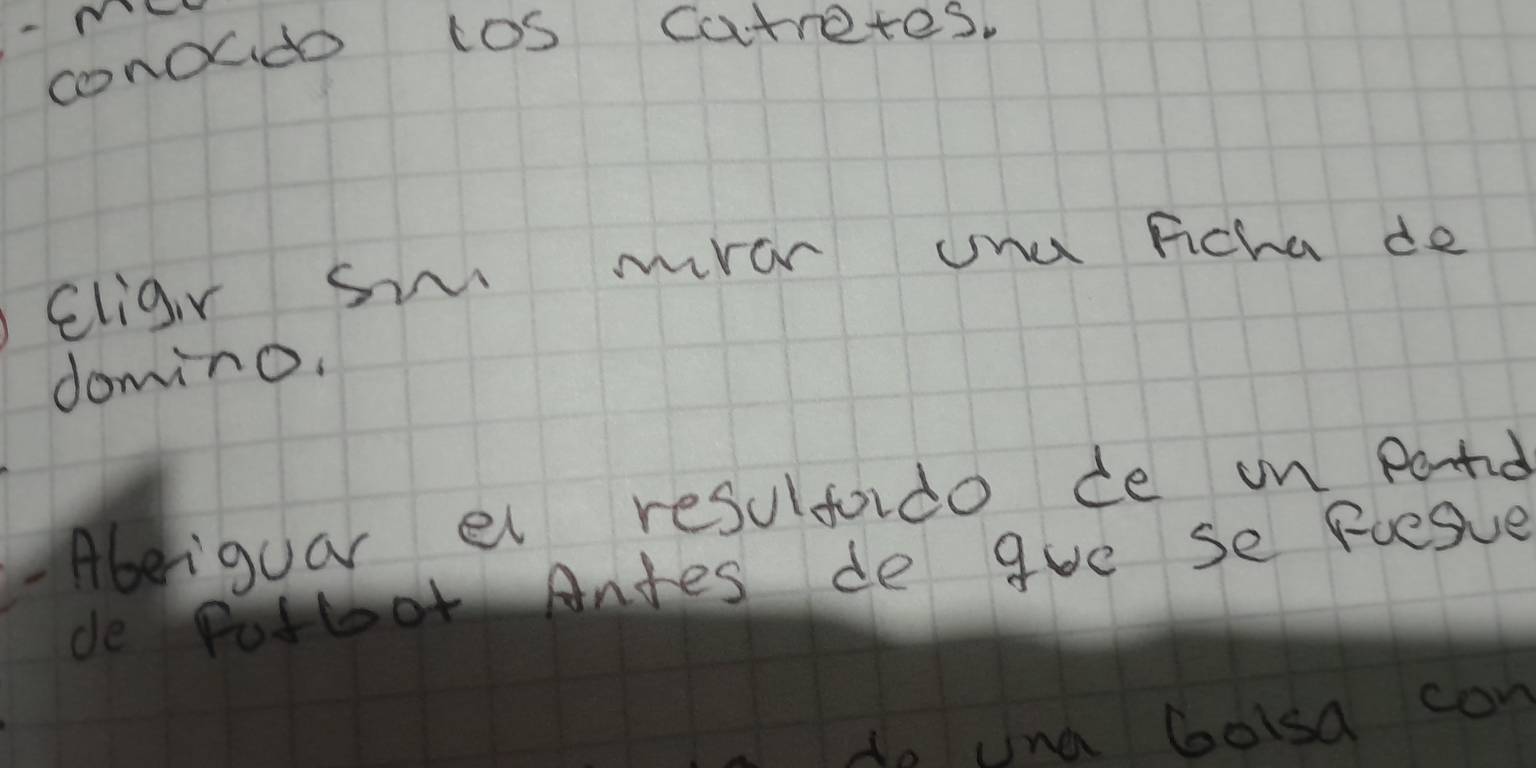 conocido los catretes.
Eligir sin mirar una Ficha de
domino.
- Aberiguar el resultado de un Partid
de Futbol Antes de que se Juegue
de una bolsa con